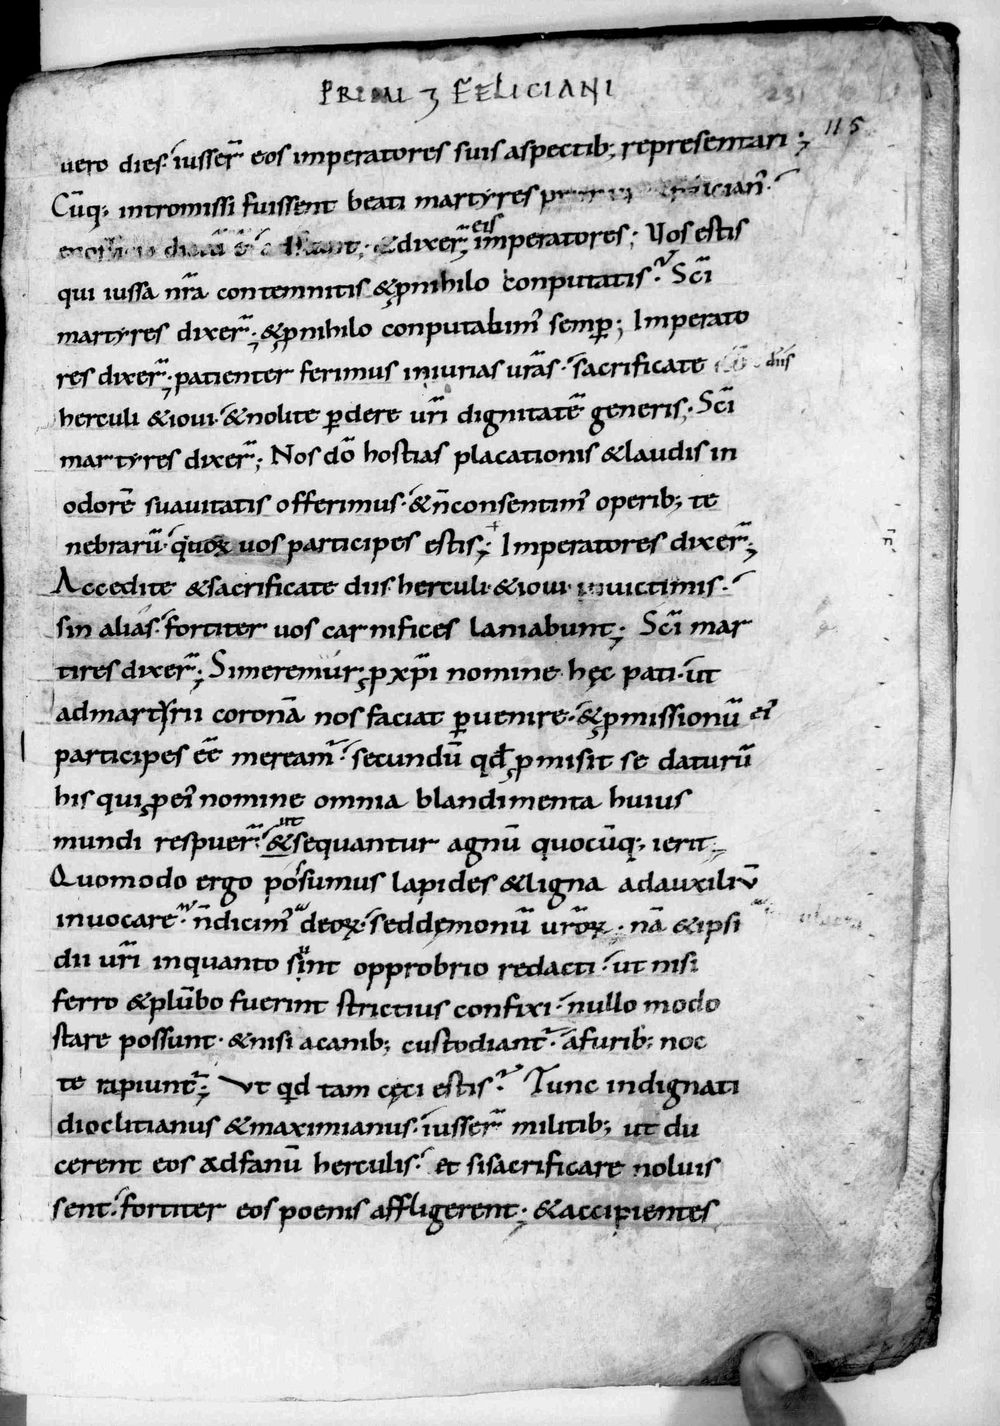 PRIMI ⁊ FELICIANI
231
115
uero dies. iusser̄ eos imperatores suis aspectib; representari;
Cūq; intromissi fuissent beati martyres
&dixer̄ eis imperatores; Vos estis
qui iussa nr̄a contemnitis &ꝓnihilo conputatis? Sc̄i
martyres dixer̄; &ꝓnihilo conputabim᾽ semꝑ; Imperato
res dixer̄; patienter ferimus iniurias ur̄as. sacrificate diis
herculi &ioui. &nolite ꝑdere ur̄i dignitatē generis; Sc̄i
martyres dixer̄; Nos dō hostias placationis &laudis in
odorē suauitatis offerimus. &n̄consentim᾽ operib; te
nebrarū. quoꝝ uos participes estis; Imperatores dixer̄;
Accedite &sacrificate diis herculi &ioui inuictimis.
sin alias. fortiter uos carnifices laniabunt; Sc̄i mar
tires dixer̄; Simeremur ꝓxp̄i nomine hęc pati. ut
admartyrii coronā nos faciat ꝑuenire. &ꝓmissionū ei᾽
participes eē meream̄. secundū qd̄ ꝓmisit se daturū
his qui ꝓei᾽ nomine omnia blandimenta huius
mundi respuer̄. ut &sequantur agnū quocūq; ierit;
Quomodo ergo possumus lapides &ligna adauxiliū
inuocare? n̄dicim᾽ deoꝝ. seddęmonū ur̄oꝝ. nā &ipsi
dii ur̄i inquanto sint opprobrio redacti. ut nisi
ferro &plūbo fuerint strictius confixi. nullo modo
stare possunt. &nisi acanib; custodiant̄. afurib; noc
te rapiunt̄; Vt qd tam cęci estis? Tunc indignati
dioclitianus &maximianus. iusser̄ militib; ut du
cerent eos adfanū herculis. et sisacrificare noluis
sent. fortiter eos poenis affligerent; &accipientes